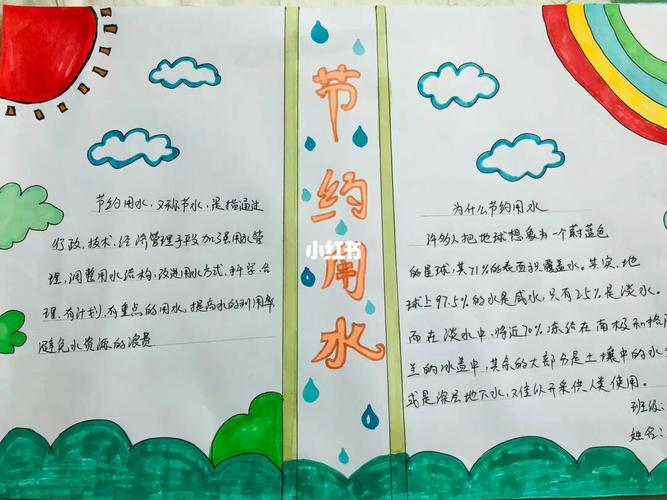 节约用水
小红书
节约用水，又称节水，是指通过
行政、技术、经济管理手段加强用水管
理，调整用水结构，改进用水方式，科学、合
理、有计划、有重点的用水，提高水的利用率，
避免水资源的浪费。
为什么节约用水
许多人把地球想象为一个蔚蓝色
的星球，其71%的表面积覆盖水。其实，地
球上97.5%的水是咸水，只有2.5%是淡水。
而在淡水中，将近70%冻结在南极和格陵
兰的冰盖中，其余的大部分是土壤中的水分
或是深层地下水，又难以开采供人类使用。
班级：
姓名：